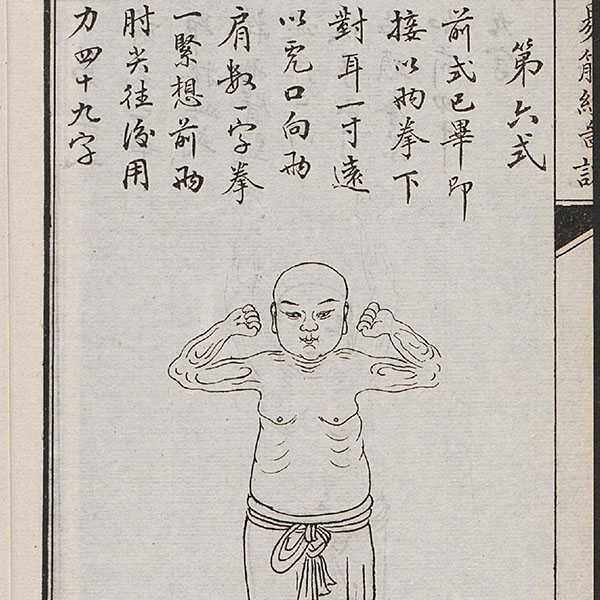 易筋經圖說
第六式
前式已畢即
接以兩拳下
對耳一寸遠
以虎口向兩
肩數一字拳
一緊想前兩
肘尖往後用
力四十九字